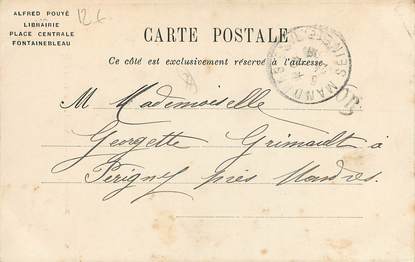 ALFRED POUYÉ
LIBRAIRIE
PLACE CENTRALE
FONTAINEBLEAU
12.6
CARTE POSTALE
Ce côté est exclusivement réservé à l'adresse
M Mademoiselle
Georgette Grimault à
Périgny près Mandres.